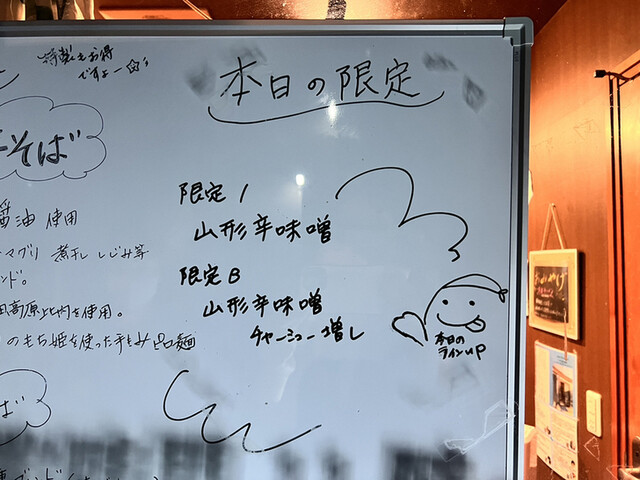 特製もお得
ですよー☆彡
本日の限定
そば
醤油 使用
マグリ 煮干し しじみ等
ンド。
高原比内を使用。
のもち姫を使った手もみ麺
限定1
山形辛味噌
限定B
山形辛味噌
チャーシュー増し
本日の
ラインUP
ば